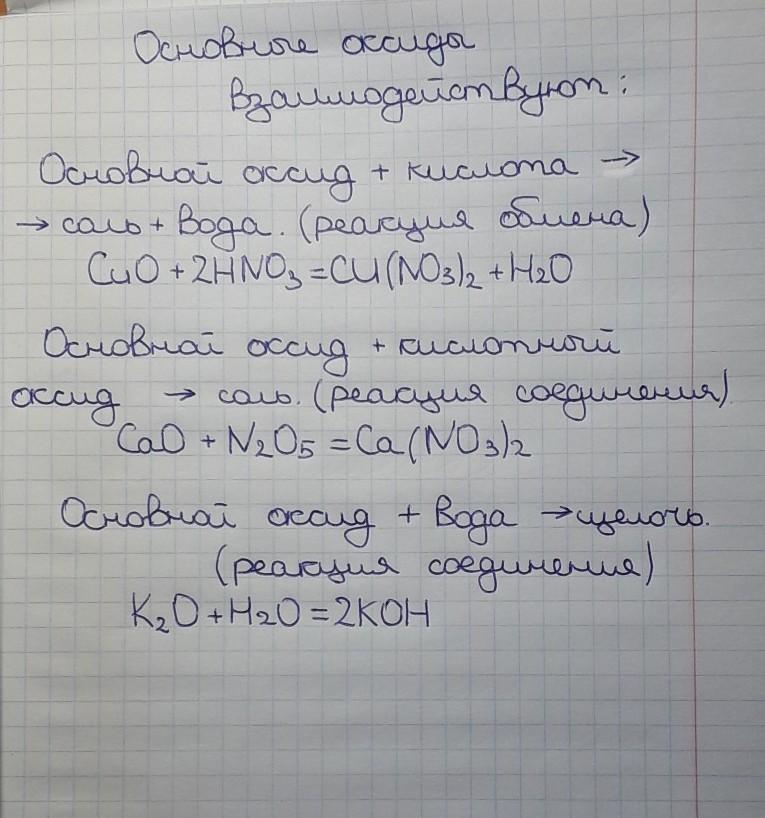 Основные оксиды
взаимодействуют:
Основной оксид + кислота →
→ соль + вода. (реакция обмена)
CuO + 2HNO₃ = CU(NO₃)₂ + H₂O
Основной оксид + кислотный
оксид → соль. (реакция соединения)
CaO + N₂O₅ = Ca(NO₃)₂
Основной оксид + вода → щелочь.
(реакция соединения)
K₂O + H₂O = 2KOH